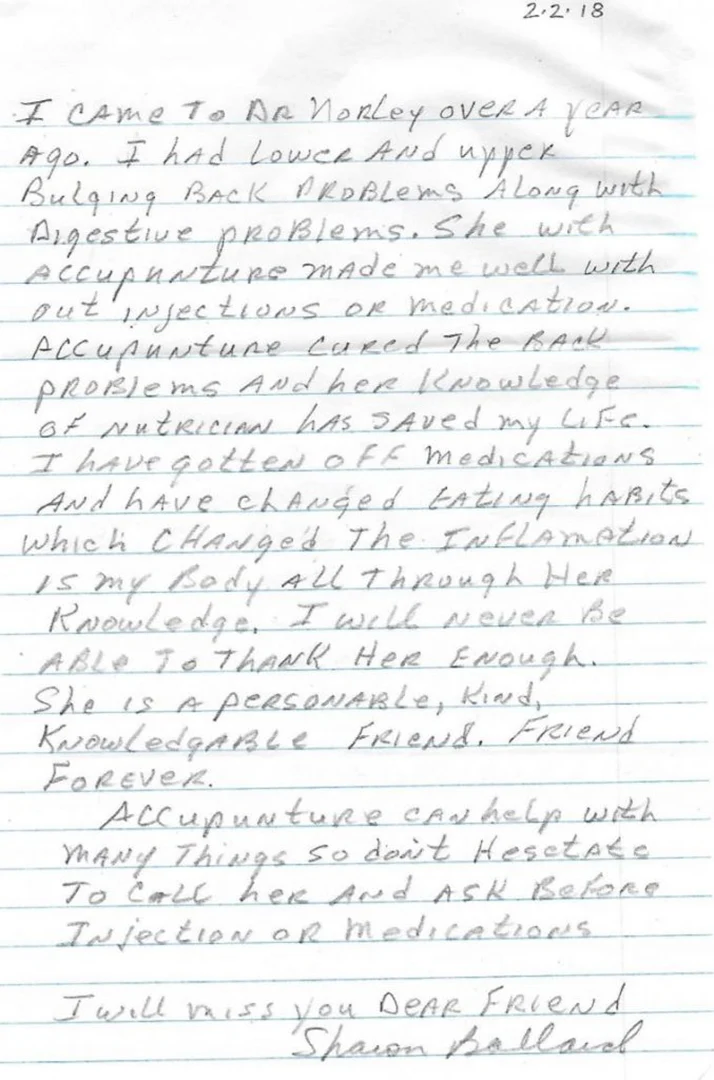 2.2.18
I CAme To DR NoRLey oveR A yeAR
Ago. I hAd LoweR ANd uppeR
BulgiNg BAck PRoBLems ALoNg with
Digestive pRoBlems. She with
AccupuNtuRe mAde me well with
out iNjectioNs oR medicAtioN.
ACCupuNtuRe cuRed The BAck
pRoBlems ANd heR KNowledge
oF NutRiciAN hAs SAved my LiFe.
I hAve gotteN oFF medicAtioNs
ANd hAve chANged EAtiNg hABits
which CHANged The INFlAmAtioN
is my Body ALL ThRough HeR
KNowledge. I will NeveR Be
ABle To ThANK HeR ENough.
She is A peRsoNABle, KiNd,
KNowledgABle FRieNd. FRieNd
FoReveR.
ACCupuNtuRe cAN help with
mANy ThiNgs so doN't HesetAte
To CALL heR ANd ASK BeFoRe
INjectioN oR medicAtioNs
I will miss you DeAR FRieNd
Sharon Ballard